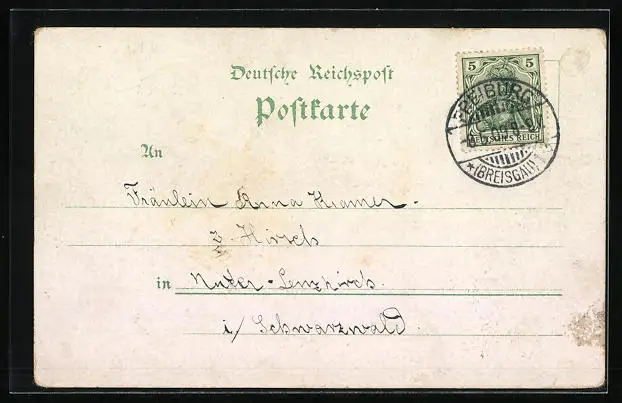 Deutsche Reichspost
Postkarte
5 5
FREIBURG
REICH
* (BREISGAU)
An
Fräulein Anna Kramer.
z. Hirsch
in Unter-Lenzkirch.
i/ Schwarzwald.